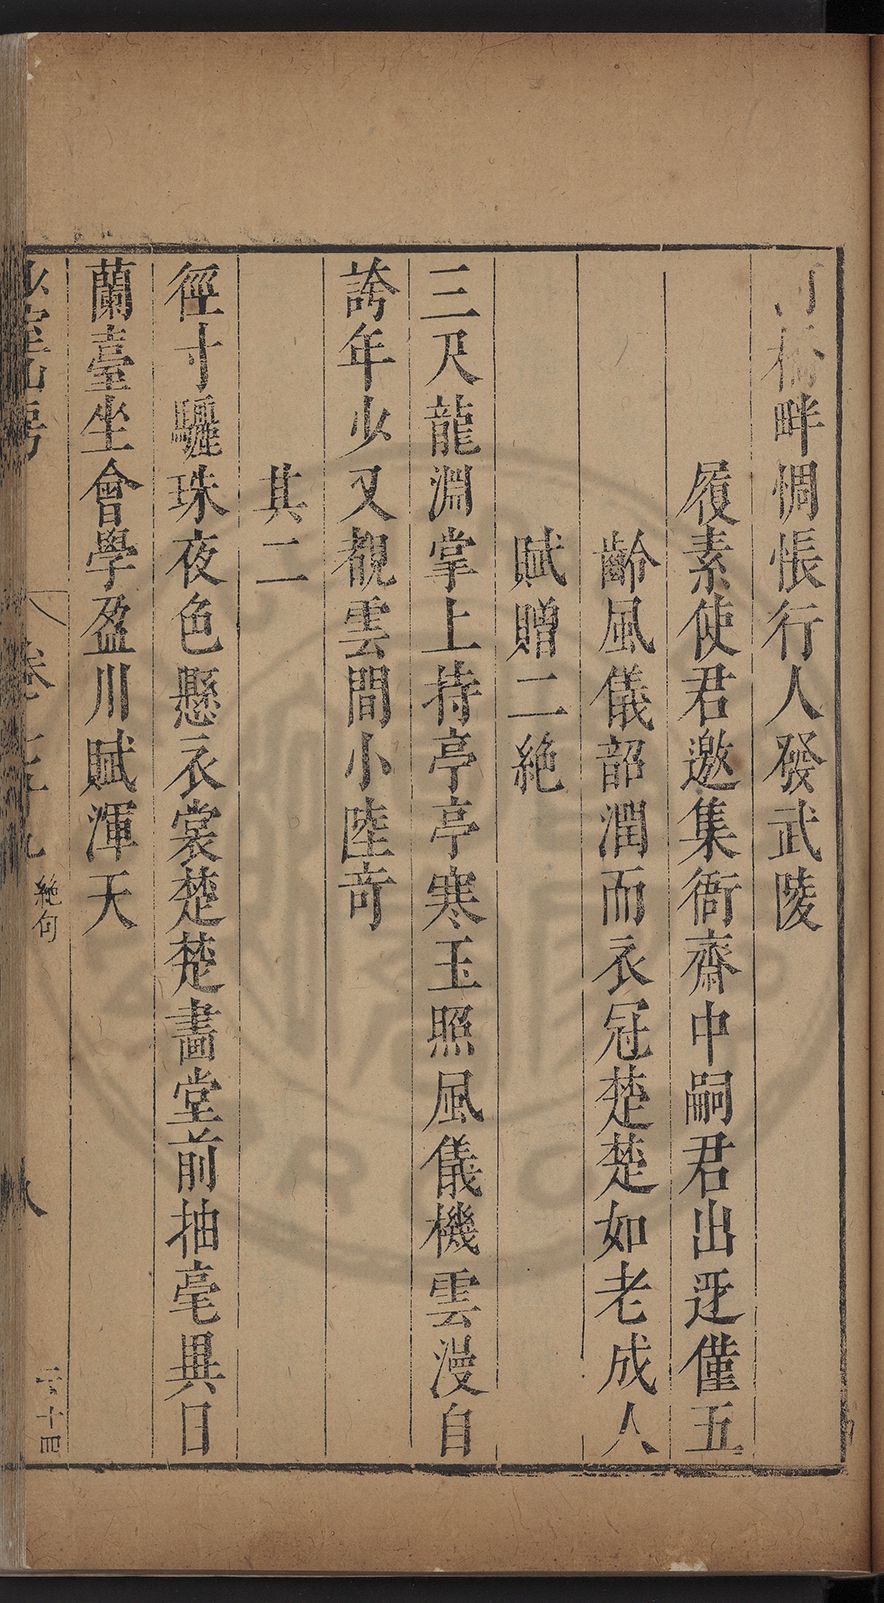 河橋畔惆悵行人發武陵
履素使君邀集衙齋中嗣君出迓僅五
齡風儀韶潤而衣冠楚楚如老成人
賦贈二絶
三尺龍淵掌上持亭亭寒玉照風儀機雲漫自
誇年少又覩雲間小陸竒
其二
徑寸驪珠夜色懸衣裳楚楚畵堂前抽毫異日
蘭臺坐會學盈川賦渾天
少室山房
絶句